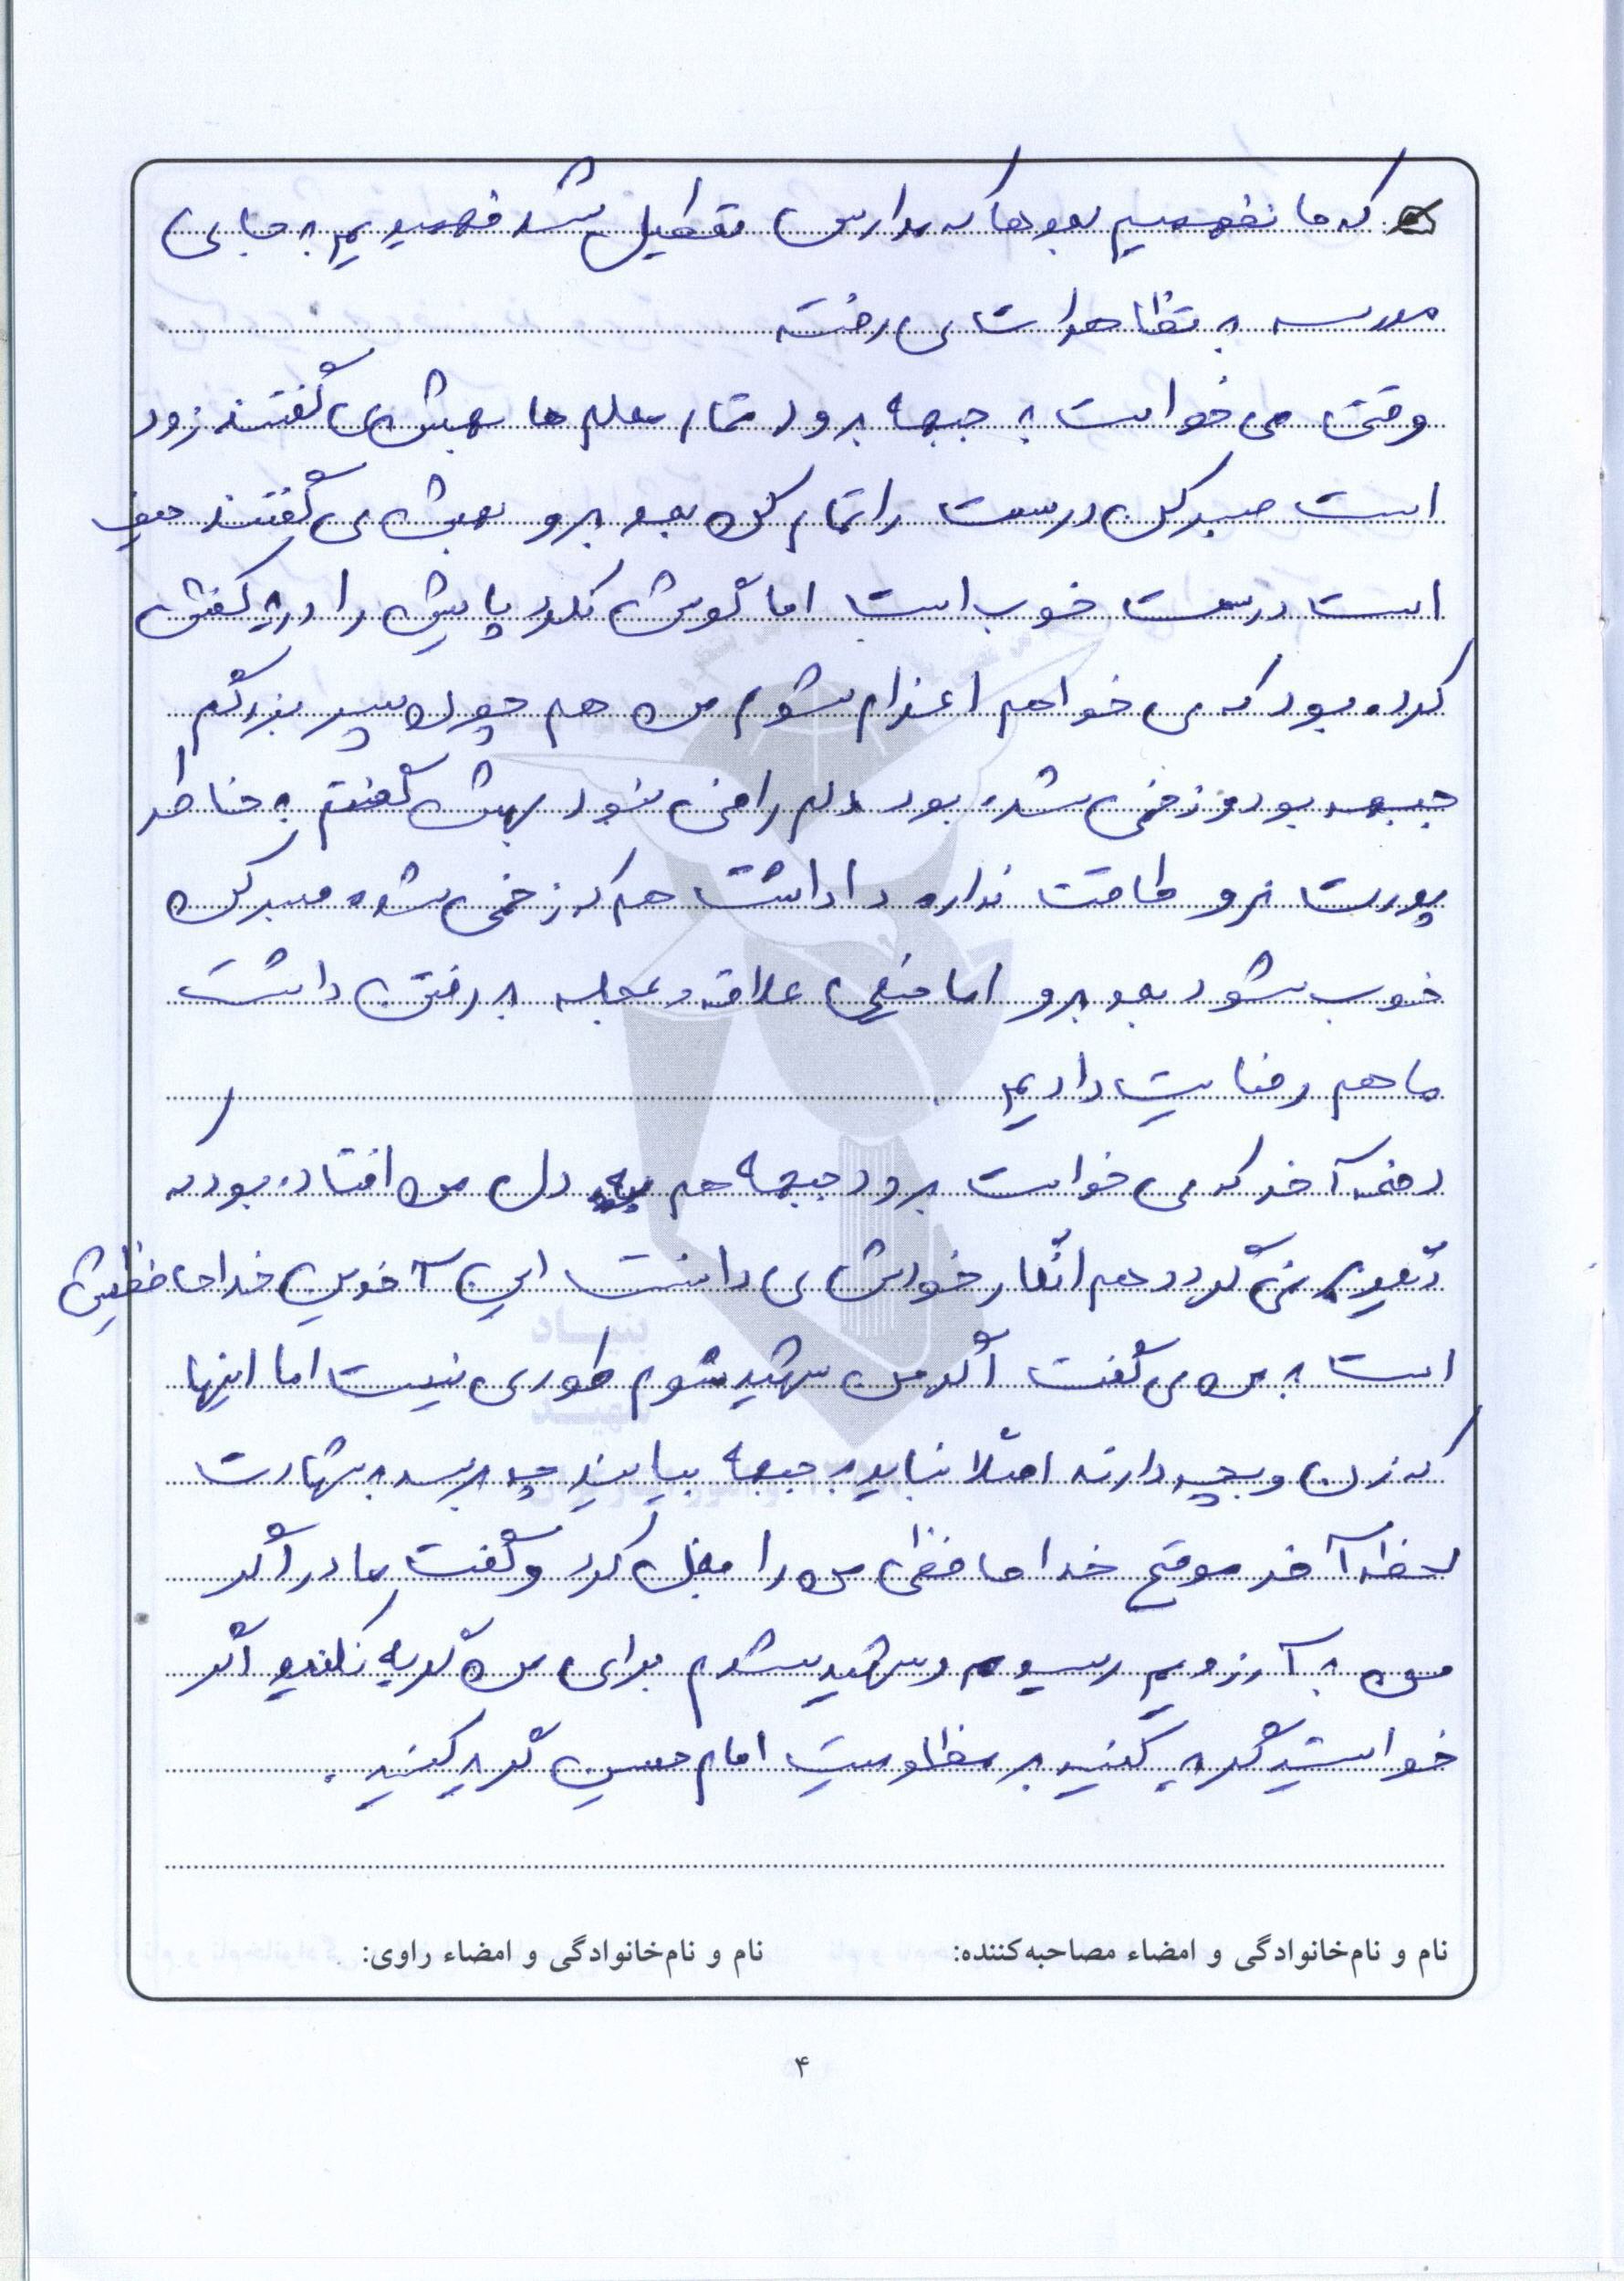 که ما نفهمیم بعدها که مدارس تعطیل شد فهمیدیم به جای
مدرسه به تظاهرات می رفته
وقتی می خواست به جبهه برود تمام معلم ها بهش می گفتند زود
است صبر کن درست را تمام کن بعد برو بهش می گفتند حیف
است درست خوب است اما گوش نکرد پایش را در یک کفش
کرده بود که می خواهم اعزام شوم من هم چون پسر بزرگم
جبهه بود و زخمی شده بود دلم راضی نبود بهش گفتم به خاطر
پدرت نرو طاقت نداره داداشت هم که زخمی شده صبر کن
خوب شود بعد برو اما خیلی علاقه و عجله به رفتن داشت
ما هم رضایت دادیم
دفعه آخر که می خواست برود جبهه هم به دل من افتاده بود که
دیگر بر نمی گردد هم انگار خودش می دانست این آخرین خداحافظیش
است به من می گفت اگر من شهید شوم طوری نیست اما اینها
که زن و بچه دارند اصلا نباید به جبهه بیایند چه برسد به شهادت
لحظه آخر موقع خداحافظی من را بغل کرد و گفت مادر اگر
من به آرزویم رسیدم و شهید شدم برای من گریه نکنید اگر
خواستید گریه کنید بر مظلومیت امام حسین گریه کنید .
نام و نام‌خانوادگی و امضاء مصاحبه‌کننده: نام و نام‌خانوادگی و امضاء راوی:
۴